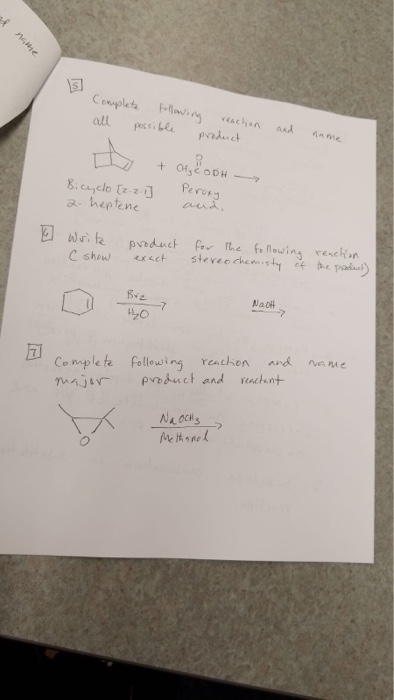 name
5 Complete following reaction and name
all possible product
+ CH3COOH
O
Bicyclo [2.2.1] Peroxy
2-heptene acid.
6 Write product for the following reaction
( show exact stereochemisty of the product)
Br2
H2O
NaOH
7 Complete following reaction and name
major product and reactant
NaOCH3
O
Methanol